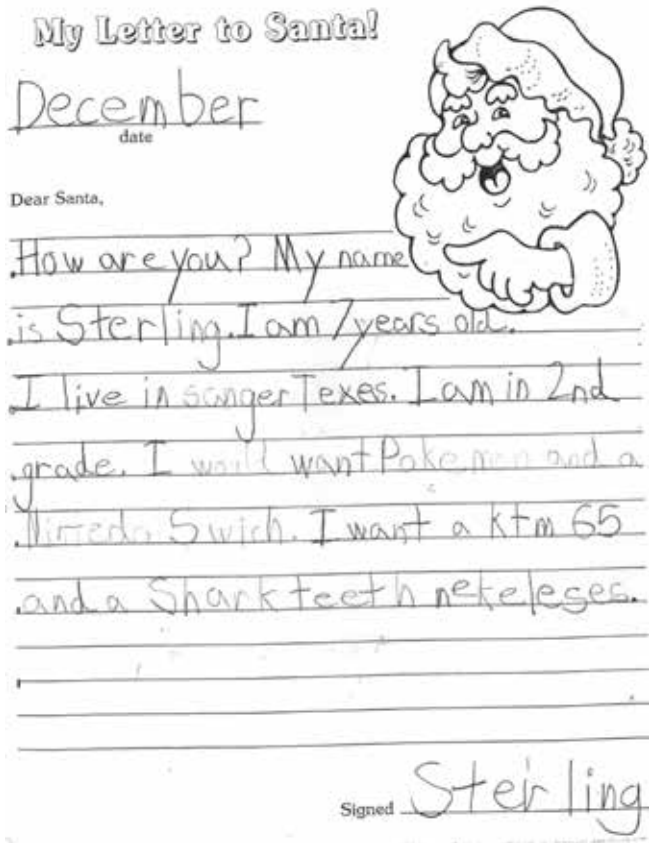 My Letter to Santa!
December
date
Dear Santa,
How are you? My name
is Sterling. I am 7 years old.
I live in sanger Texes. I am in 2nd
grade. I want Pokemon and a
Swich. I want a ktm 65
and a Shark teeth nekeleses.
Signed Sterling